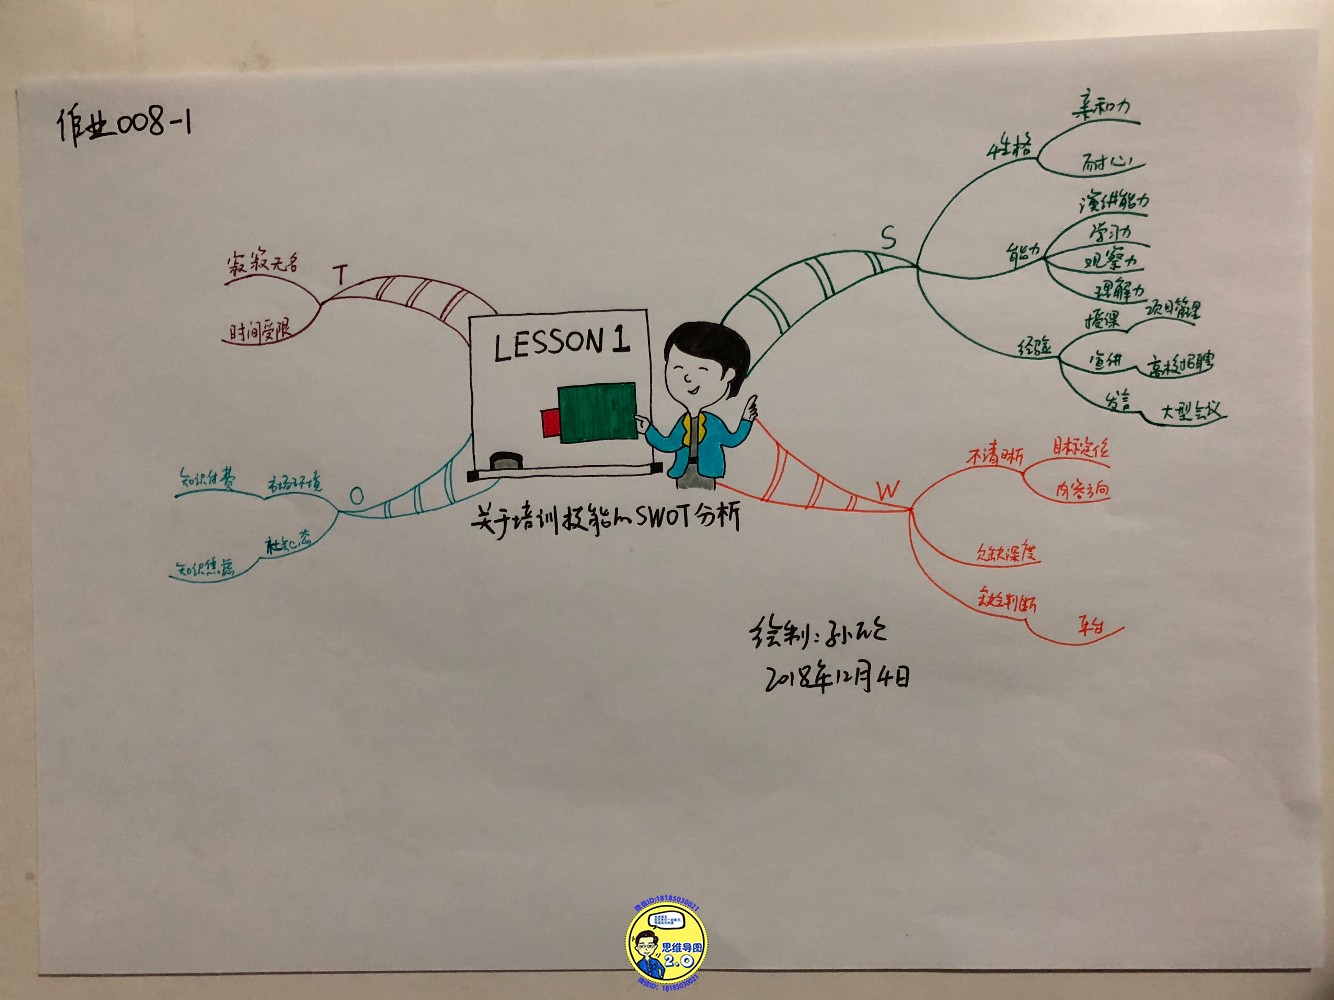 作业008-1
LESSON 1
关于培训技能的SWOT分析
S
性格
亲和力
耐心
能力
演讲能力
学习力
观察力
理解力
经验
授课
项目管理
宣讲
高校招聘
发言
大型会议
W
不清晰
目标定位
内容方向
欠缺深度
缺乏判断
平台
O
市场环境
知识付费
社会心态
知识焦虑
T
寂寂无名
时间受限
绘制:孙
2018年12月4日
微信ID:18185030021
思维导图
2.0
微信ID: 18185030021